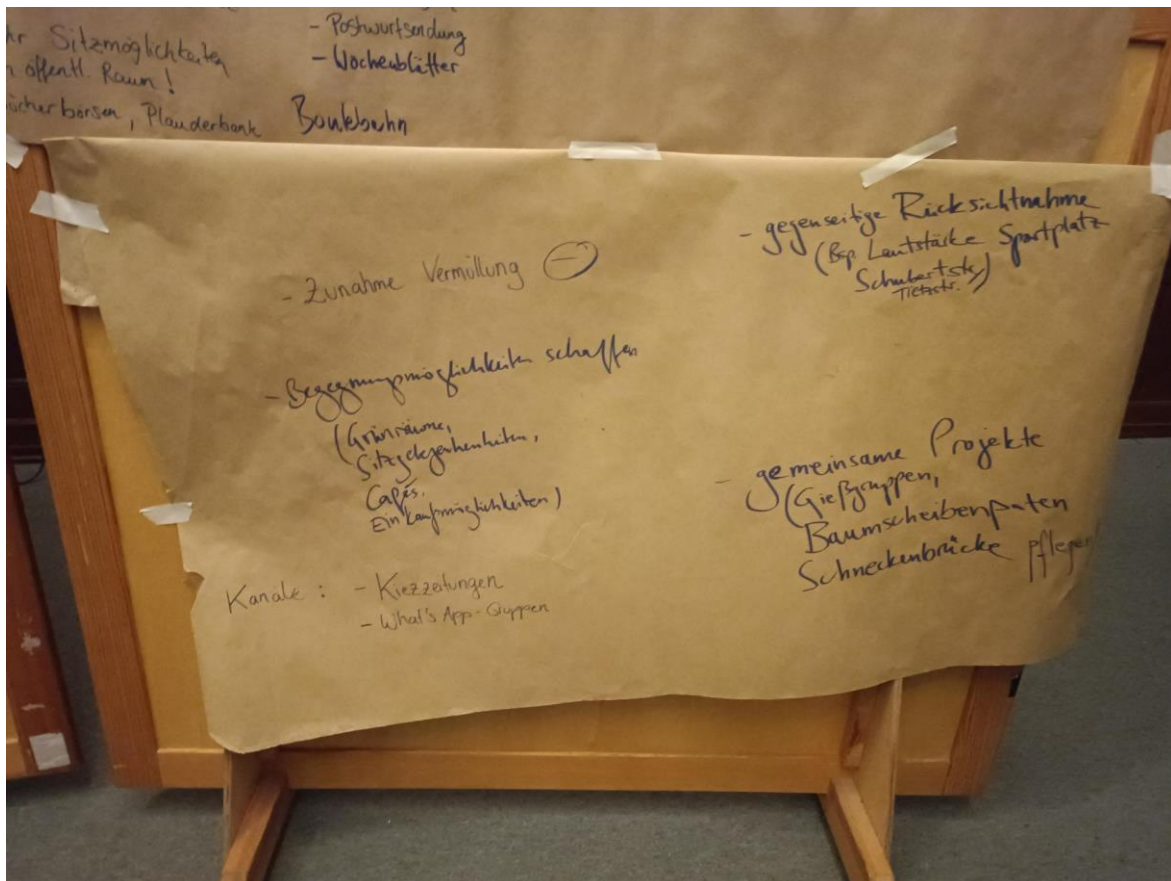 Sitzmöglichkeiten
öffentl. Raum!
Plauderbank
- Postwurfsendung
- Wochenblätter
Boulebahn
- Zunahme Vermüllung
- Begegnungsmöglichkeiten schaffen
(Grünräume,
Sitzgelegenheiten,
Cafés,
Einkaufsmöglichkeiten)
Kanäle: - Kiezzeitungen
- What's App-Gruppen
- gegenseitige Rücksichtnahme
(Bsp. Lautstärke Sportplatz
Schubertstr.)
Tietzstr.
- gemeinsame Projekte
(Gießgruppen,
Baumscheibenpaten
Schneckenbrücke pflegen